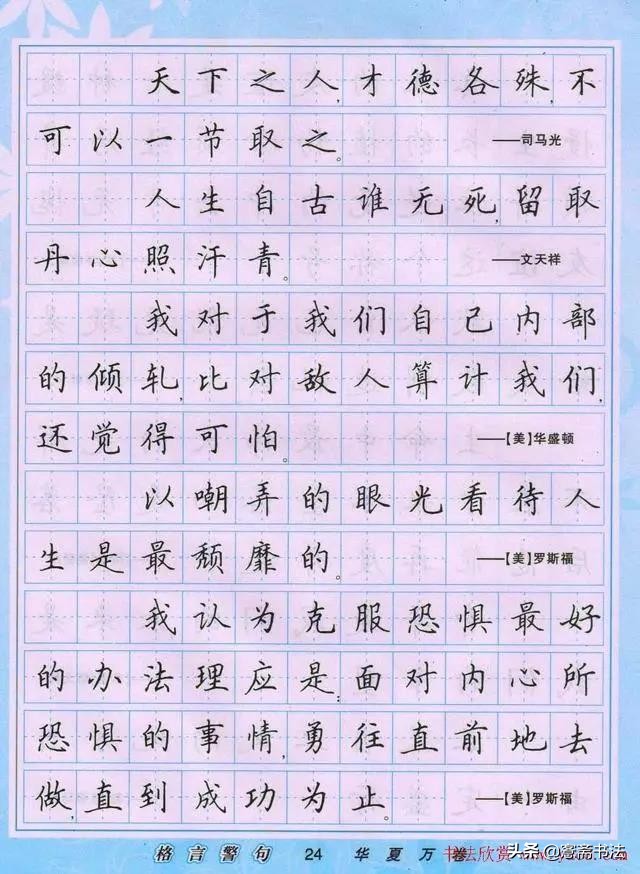 天下之人,才德各殊,不
可以一节取之。 ——司马光
人生自古谁无死,留取
丹心照汗青。 ——文天祥
我对于我们自己内部
的倾轧,比对敌人算计我们,
还觉得可怕。 ——【美】华盛顿
以嘲弄的眼光看待人
生是最颓靡的。 ——【美】罗斯福
我认为克服恐惧最好
的办法理应是:面对内心所
恐惧的事情,勇往直前地去
做,直到成功为止。 ——【美】罗斯福
格言警句 24 华夏万卷 书法欣赏
头条@鸯斋书法